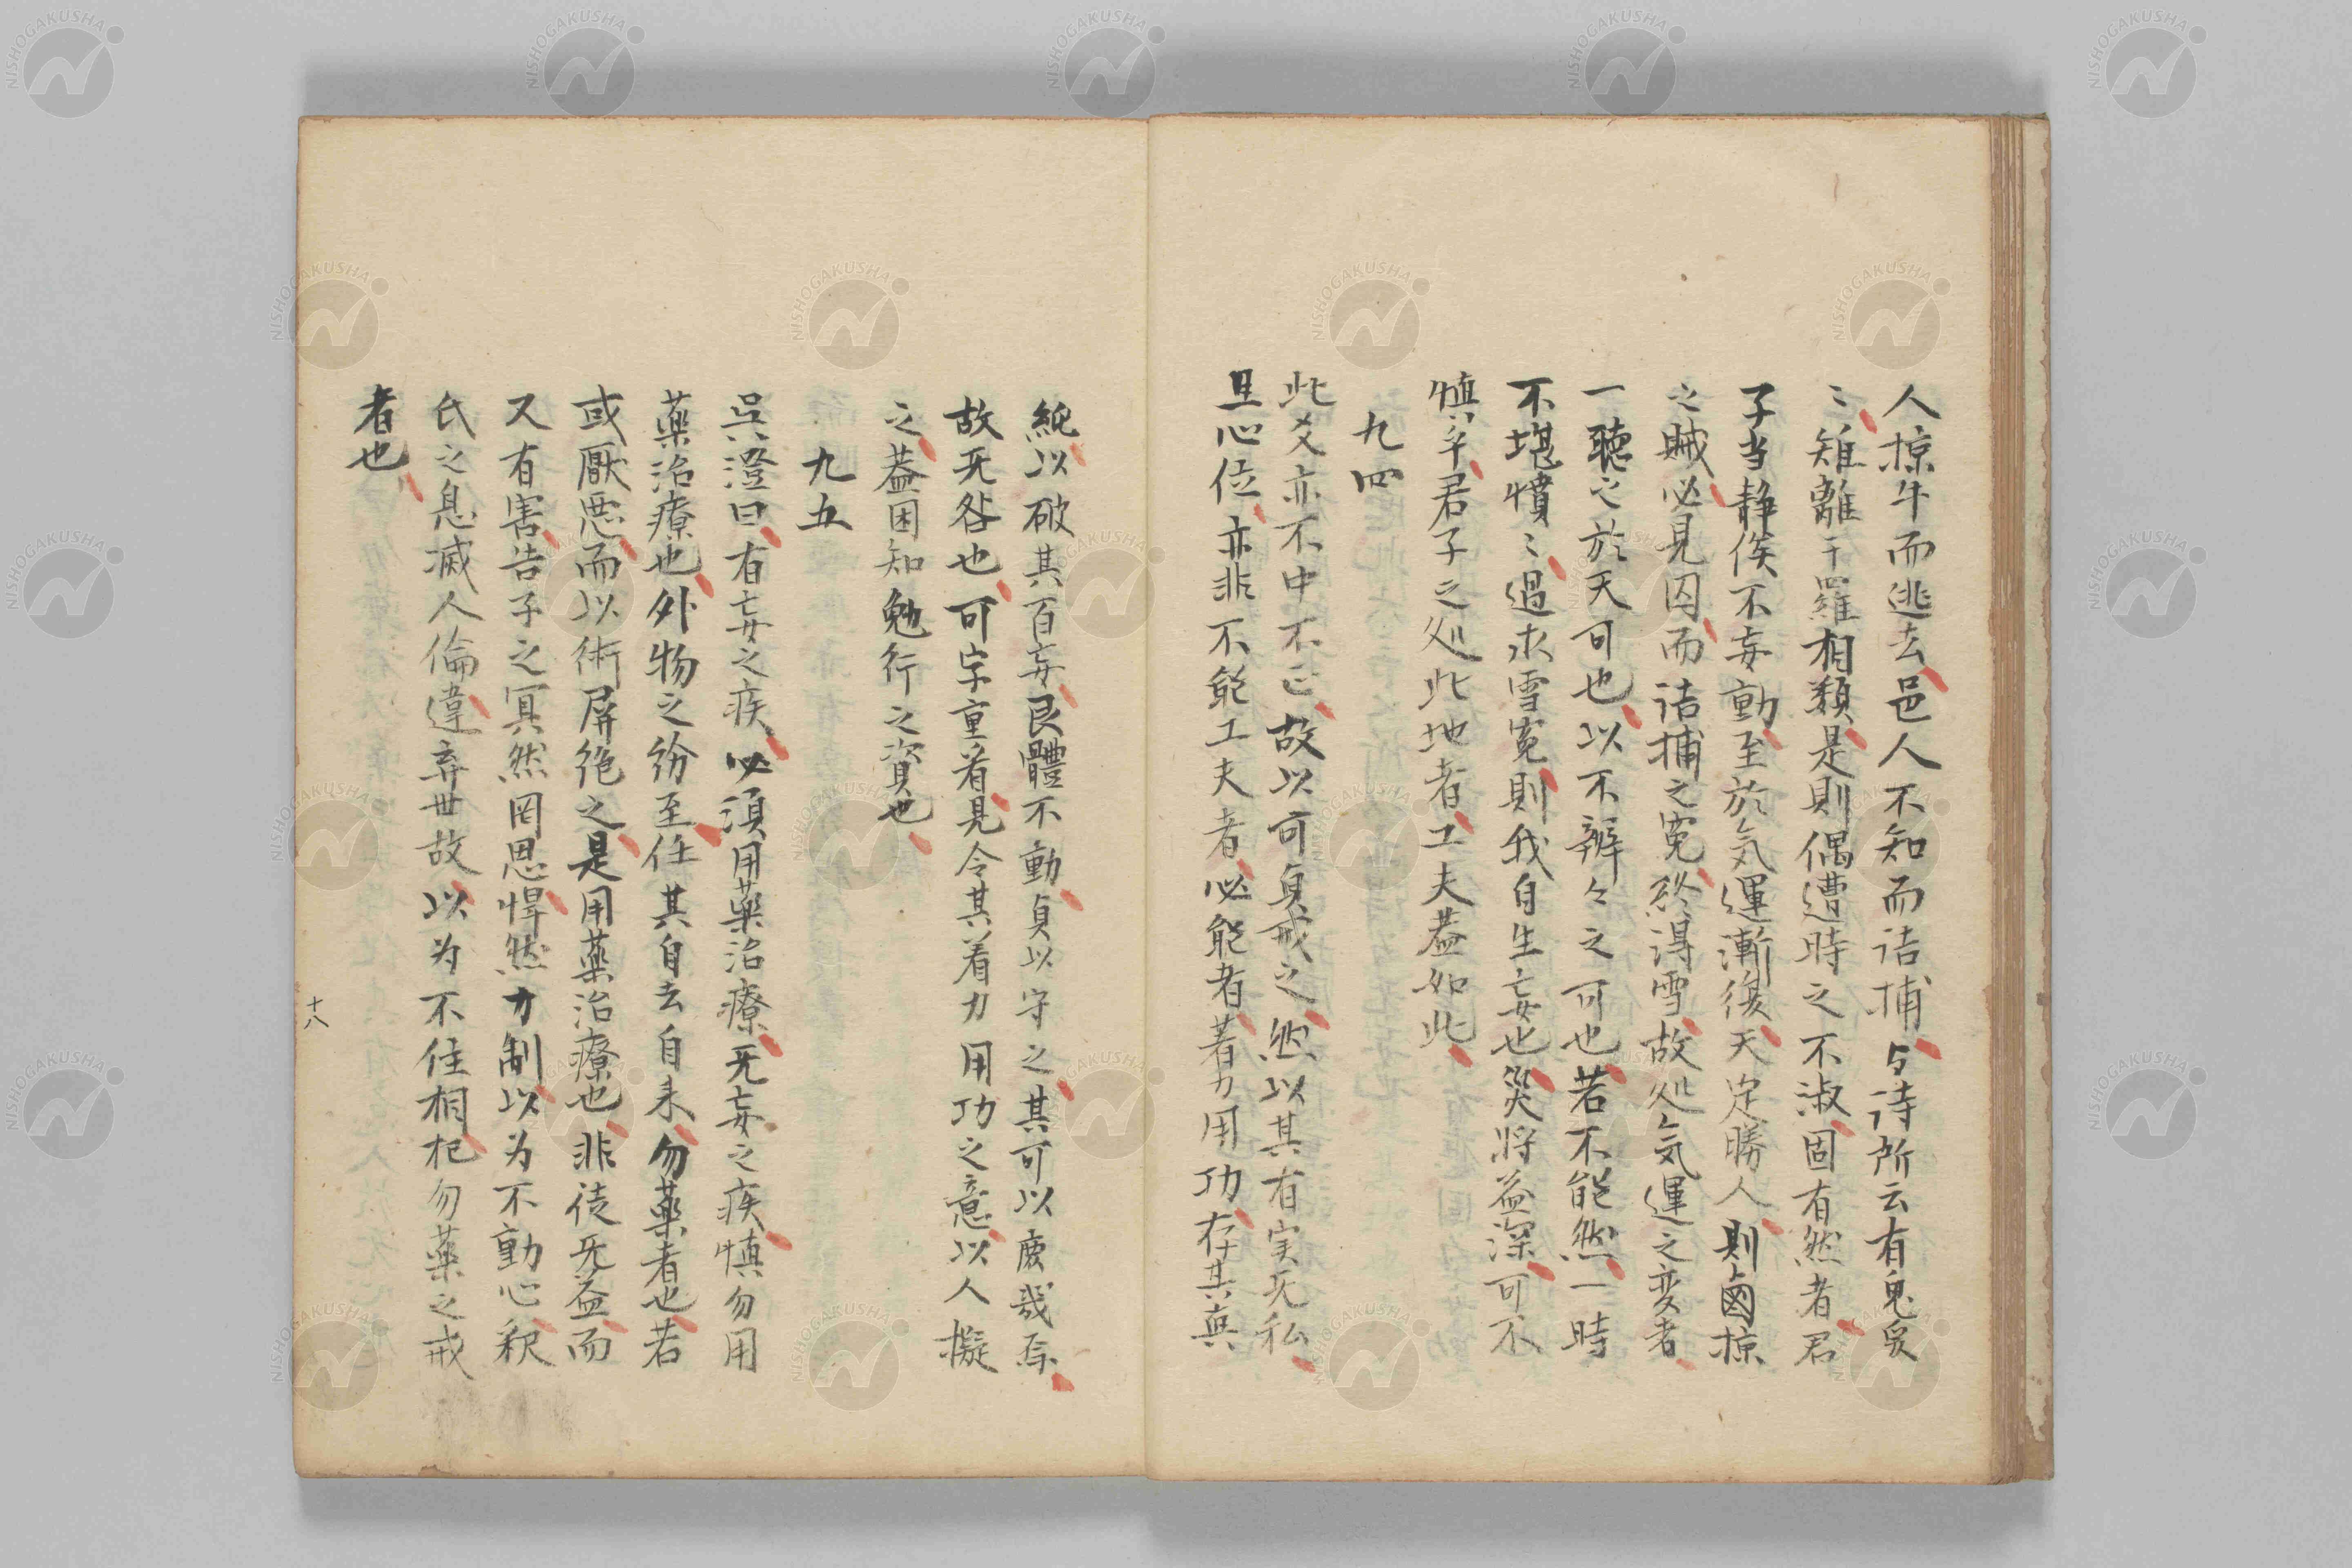 人掠牛而逃去邑人不知而詰捕与詩所云有兎爰
〻雉離于羅相類是則偶遭時之不淑固有然者君
子当静俟不妄動至於気運漸復天定勝人則鹵掠
之賊必見囚而詰捕之寃終得雪故処気運之変者
一聴之於天可也以不辨々之可也若不能然一時
不堪憤〻過求雪寃則我自生妄也災将益深可不
慎乎君子之処此地者工夫蓋如此
九四
此爻亦不中不正故以可貞戒之然以其有実无私
且心位亦非不能工夫者必能者著力用功存其真
純以破其百妄艮體不動貞以守之其可以庶幾焉
故无咎也可字重看見令其着力用功之意以人擬
之蓋困知勉行之資也
九五
呉澄曰有妄之疾必須用薬治療无妄之疾慎勿用
薬治療也外物之紛至任其自去自来勿薬者也若
或厭悪而以術屏絶之是用薬治療也非徒无益而
又有害告子之冥然罔思悍然力制以为不動心釈
氏之息滅人倫違弃世故以为不住相犯勿薬之戒
者也
十八
NISHOGAKUSHA